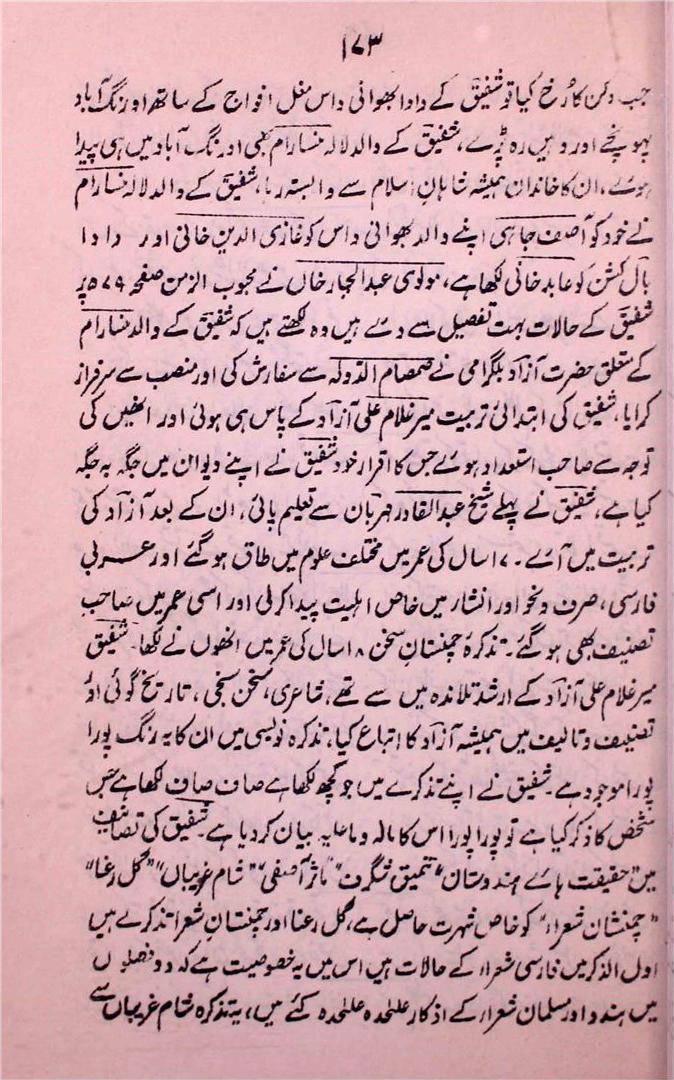 ۱۷۳
جب دکن کا رُخ کیا تو شفیق کے دادا بھوانی داس مغل افواج کے ساتھ اورنگ آباد
پہونچے اور وہیں رہ پڑے، شفیق کے والد لالہ منسارام بھی اورنگ آباد میں ہی پیدا
ہوئے، ان کا خاندان ہمیشہ شاہانِ اسلام سے وابستہ رہا، شفیق کے والد لالہ منسارام
نے خود کو آصف جاہی اپنے والد بھوانی داس کو غازی الدین خانی اور دادا
بال کشن کو عابد خانی لکھا ہے، مولوی عبدالجبار خاں نے محبوب الزمن صفحہ ۵۷۹ پر
شفیق کے حالات بہت تفصیل سے دئے ہیں وہ لکھتے ہیں کہ شفیق کے والد منسارام
کے متعلق حضرت آزاد بلگرامی نے صمصام الدولہ سے سفارش کی اور منصب سے سرفراز
کرایا، شفیق کی ابتدائی تربیت میر غلام علی آزاد کے پاس ہی ہوئی اور انھیں کی
توجہ سے صاحب استعداد ہوئے جس کا اقرار خود شفیق نے اپنے دیوان میں جگہ بہ جگہ
کیا ہے، شفیق نے پہلے شیخ عبدالقادر مہربان سے تعلیم پائی، ان کے بعد آزاد کی
تربیت میں آئے۔ ۱۷ سال کی عمر میں مختلف علوم میں طاق ہو گئے اور عربی
فارسی، صرف و نحو اور انشار میں خاص اہلیت پیدا کرلی اور اسی عمر میں صاحب
تصنیف بھی ہو گئے۔ تذکرۂ چمنستانِ سخن ۱۸ سال کی عمر میں انھوں نے لکھا۔ شفیق
میر غلام علی آزاد کے ارشد تلامذہ میں سے تھے، شاعری، سخن سنجی، تاریخ گوئی اور
تصنیف و تالیف میں ہمیشہ آزاد کا اتباع کیا، تذکرہ نویسی میں ان کا یہ رنگ پورا
پورا موجود ہے۔ شفیق نے اپنے تذکرے میں جو کچھ لکھا ہے صاف صاف لکھا ہے جس
شخص کا ذکر کیا ہے تو پورا پورا اس کا مالہ و ماعلیہ بیان کر دیا ہے۔ شفیق کی تصانیف
میں "حقیقت ہائے ہندوستان" "تنمیق شگرف" "مآثر آصفی" "شام غریباں" "گل رعنا"
"چمنستان شعراء" کو خاص شہرت حاصل ہے، گل رعنا اور چمنستان شعرا تذکرے ہیں
اول الذکر میں فارسی شعراء کے حالات ہیں اس میں یہ خصوصیت ہے کہ دو فصلوں
میں ہندو اور مسلمان شعراء کے اذکار علیٰحدہ علیٰحدہ کئے ہیں، یہ تذکرہ شام غریباں سے